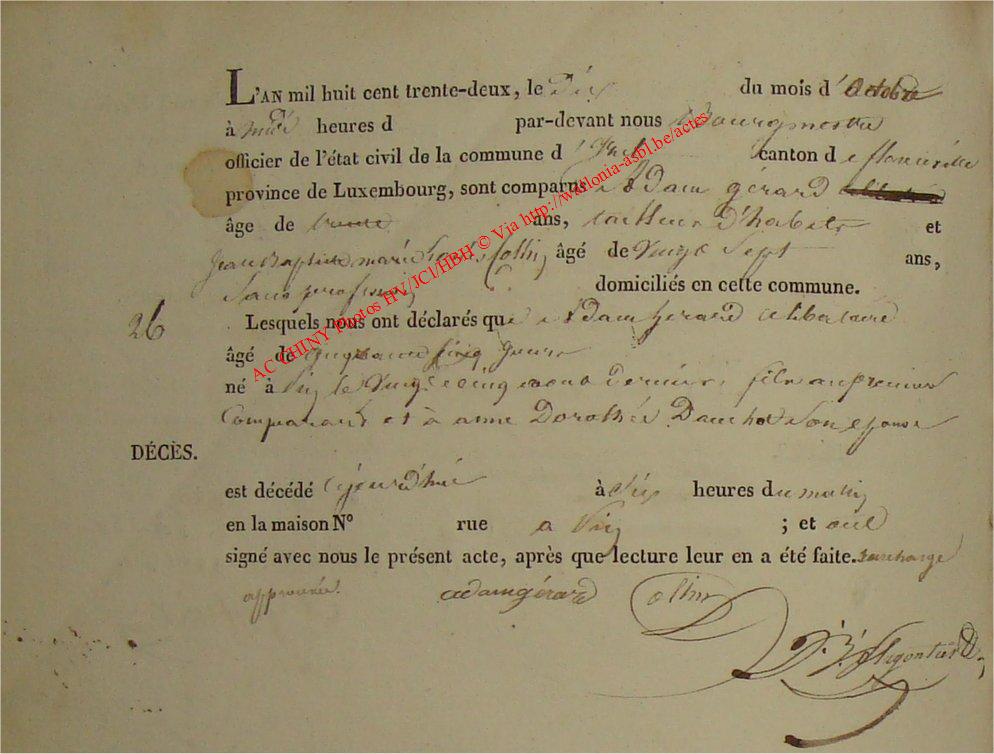 L'AN mil huit cent trente-deux, le dix du mois d'Octobre
à midi heures d par-devant nous Bourgmestre
officier de l'état civil de la commune d canton de florenville
province de Luxembourg, sont comparus Adam gérard
âge de trente ans, tailleur d'habits et
Jean Baptiste marie Collin âgé de Vingt Sept ans,
Sans profession domiciliés en cette commune.
26
Lesquels nous ont déclarés que Adam Gérard celibataire
âgé de cinq jours
né à le Vingt cinq dernier, fils au premier
Comparant et à anne Dorothée son epouse
DÉCÈS.
est décédé aujourd'hui à Six heures du matin
en la maison N° rue a ; et ont
signé avec nous le présent acte, après que lecture leur en a été faite. surcharge
approuvée. adam gérard Collin
AC CHINY Photos HV/JCl/HBH © Via http://wallonia-asbl.be/actes